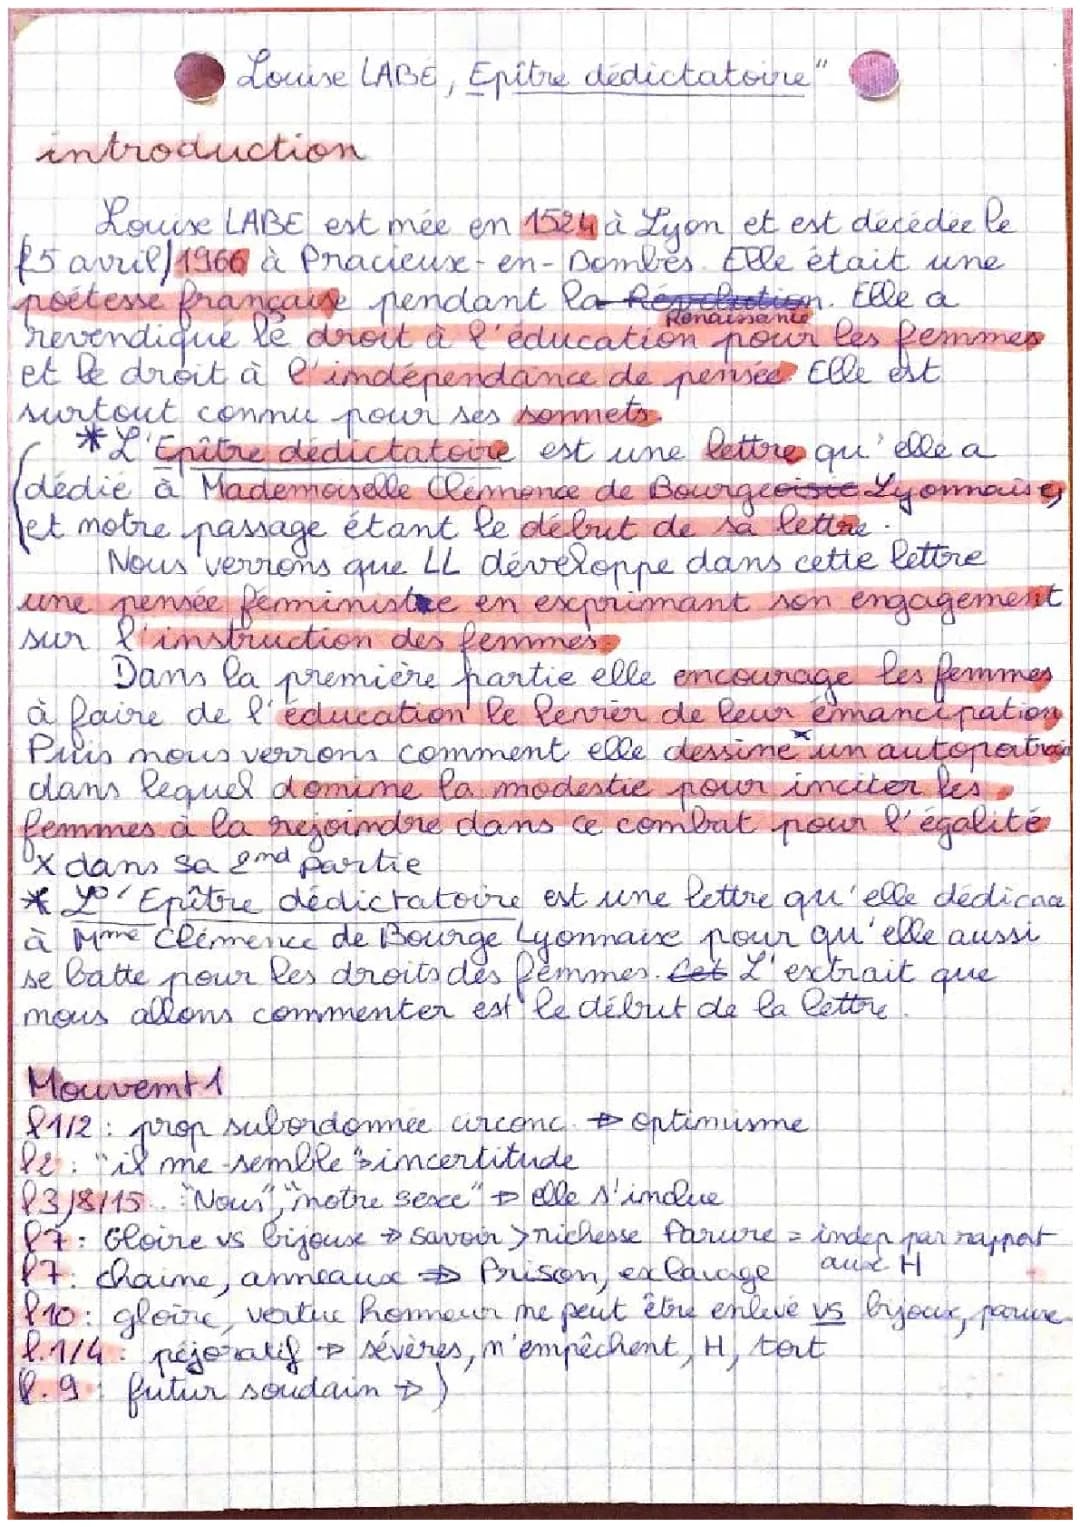 Louise LABÉ, Epître dédictatoire"
introduction
Louise LABE est née en 1524 à Lyon et est décédée le
25 avril 1966 à Pracieux-en-Dombes. Elle était une
poétesse française pendant la Révolution. Elle a
Renaissance
revendiqué le droit à l'éducation pour les femmes
et le droit à l'indépendance de pensée. Elle est
surtout connu pour ses sonnets.
* L'Epître dédictatoire est une lettre qu'elle a
dédié à Mademoiselle Clémence de Bourgeoisie Lyonnaise,
et notre passage étant le début de sa lettre.
Nous verrons que LL développe dans cette lettre
une pensée féministe en exprimant son engagement
sur l'instruction des femmes.
Dans la première partie elle encourage les femmes
à faire de l'éducation le levier de leur émancipation
Puis nous verrons comment elle dessine x un autoportrait
dans lequel domine la modestie pour inciter les
femmes à la rejoindre dans ce combat pour l'égalité.
x dans sa 2nd partie
* L' Epître dédictatoire est une lettre qu'elle dédicace
à Mme Clémence de Bourge Lyonnaise pour qu'elle aussi
se batte pour les droits des femmes. Cet L'extrait que
nous allons commenter est le début de la lettre.
Mouvemt 1
l1/2 : prop subordonnée circonc. ⇒ optimisme
l2 : "il me semble" incertitude
l3/8/15... "Nous", "notre sexe" ⇒ elle s'inclue
l7 : Gloire vs bijoux ⇒ savoir > richesse Parure = indep par rapport
aux H
l7 : chaine, anneaux ⇒ Prison, exlavage
l10 : gloire, vertue honneur ne peut être enlevé vs bijoux, parure
l.1/4 : péjoratif ⇒ sévères, n'empêchent, H, tort
l.9 : futur soudain ⇒ )